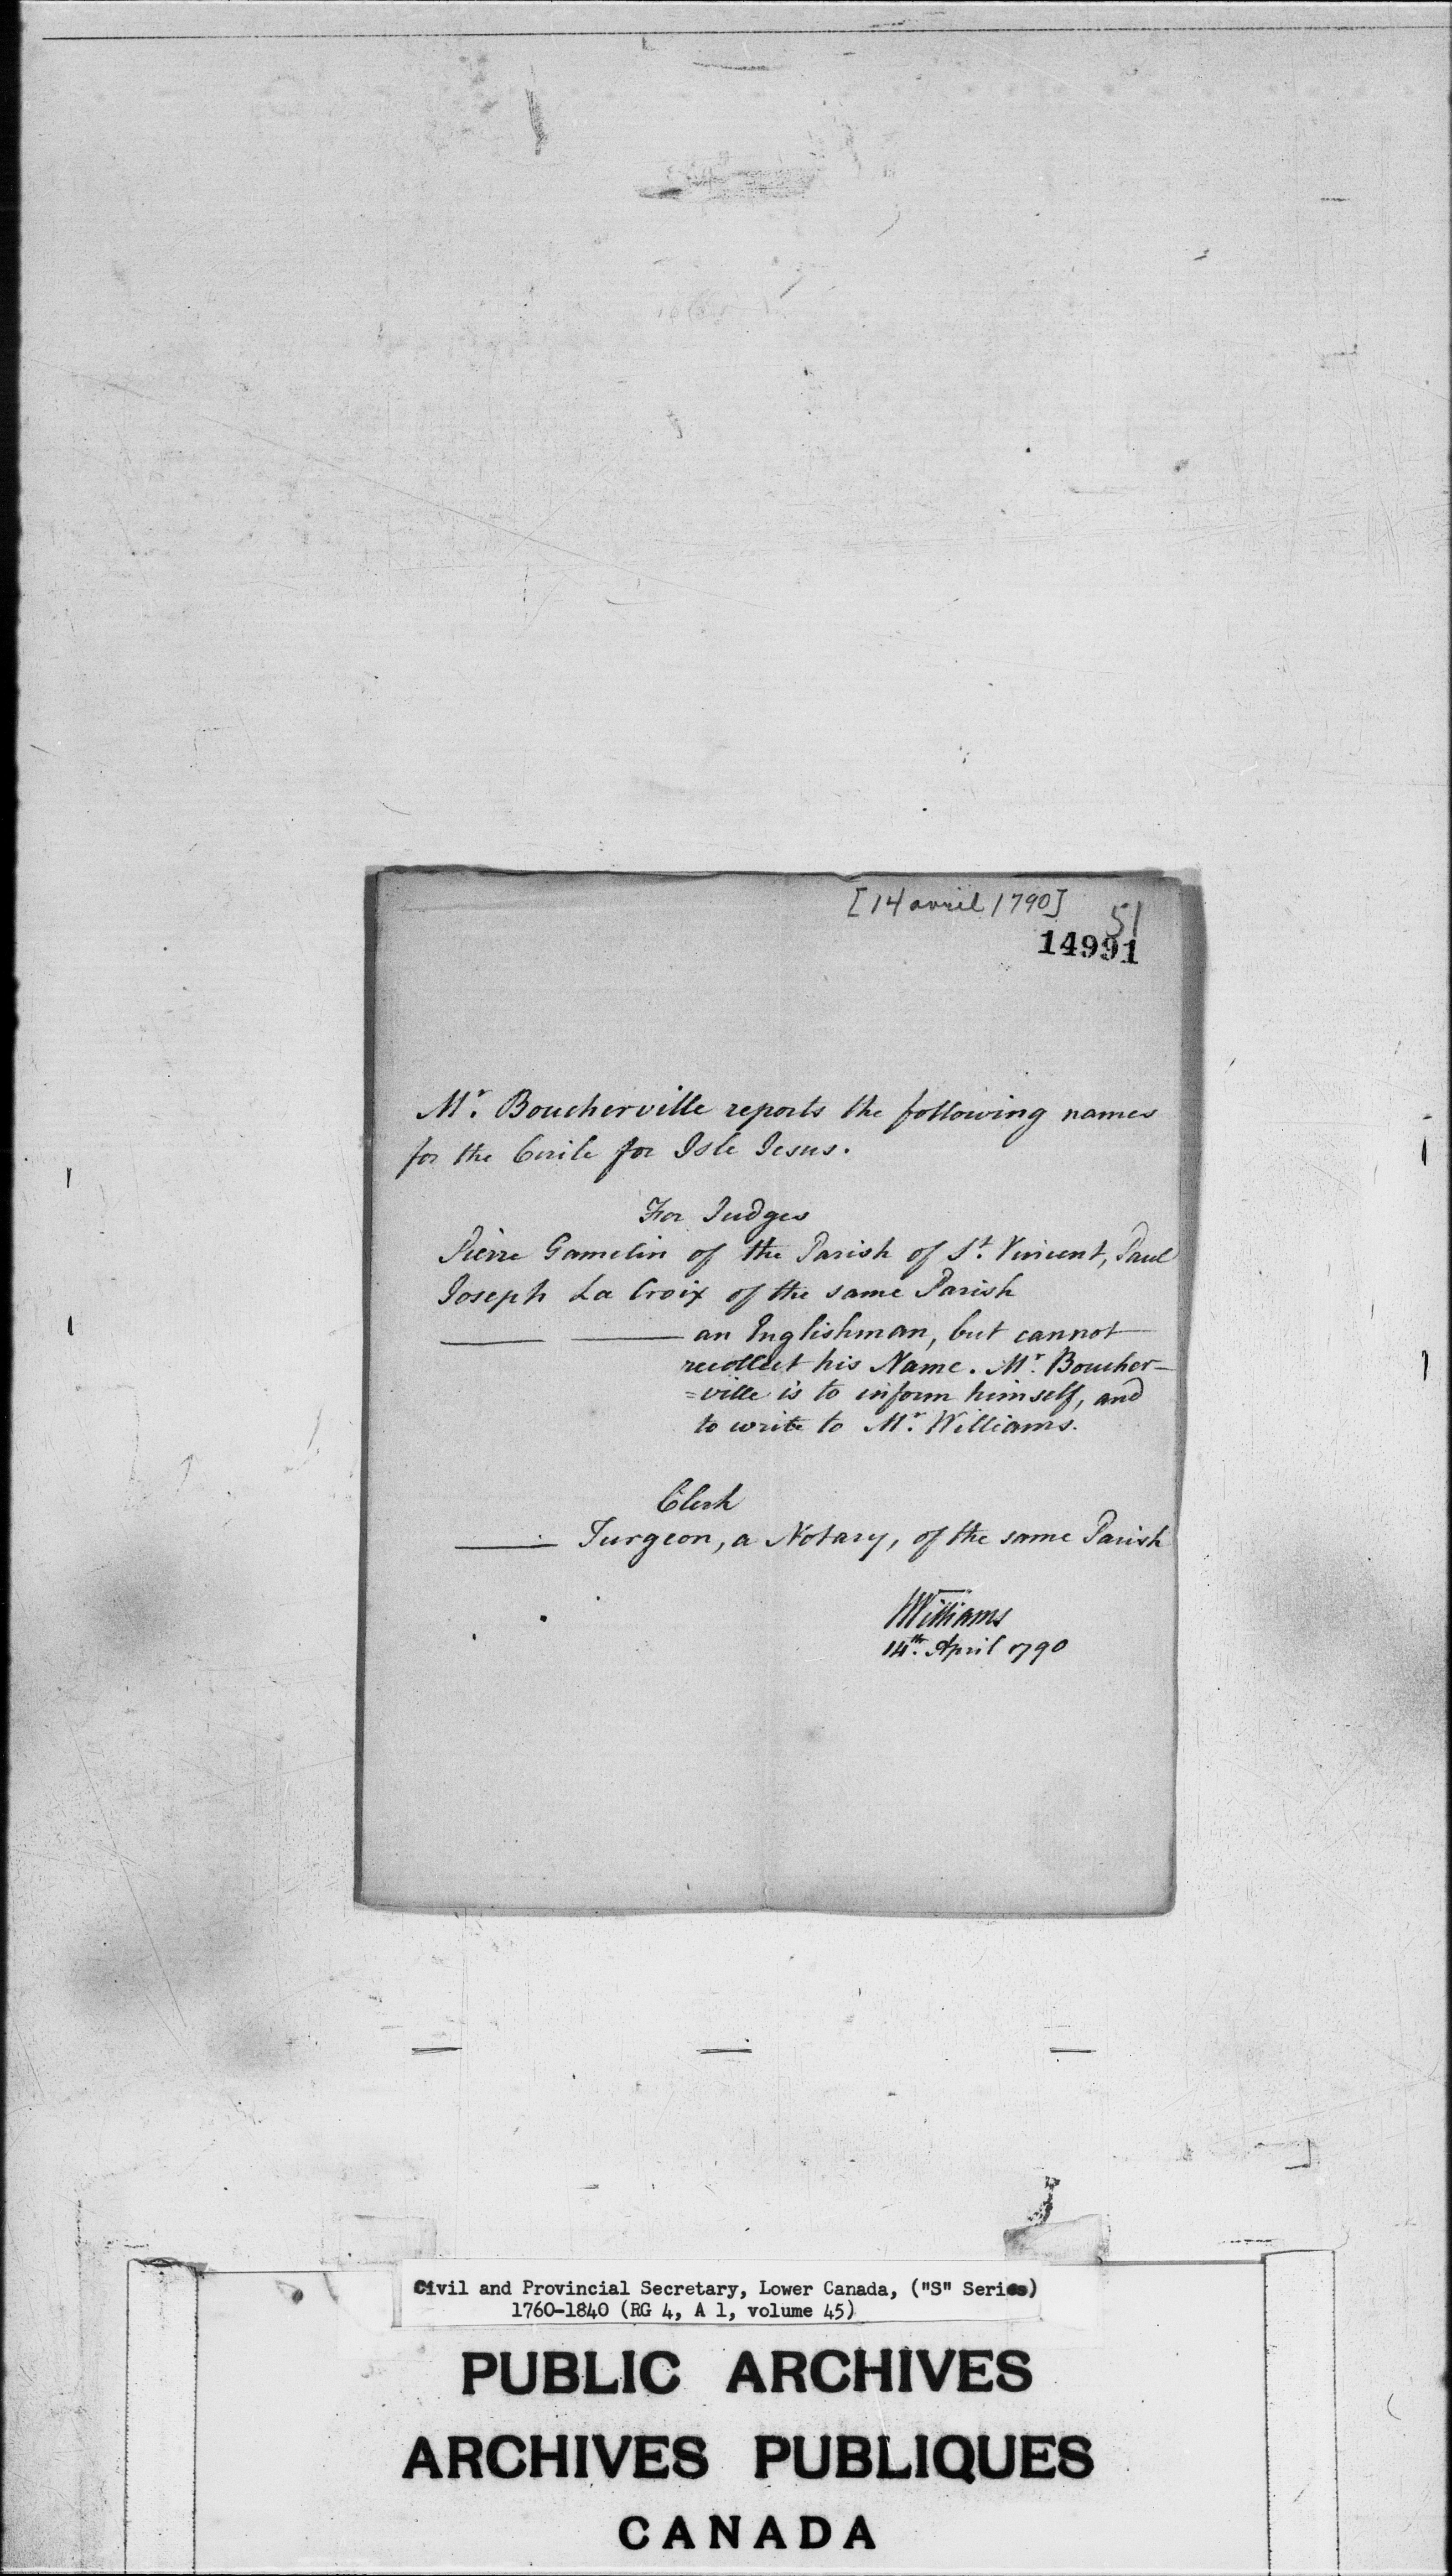 [14 avril 1790]
51
14991
Mr. Boucherville reports the following names
for the Circle for Isle Jesus.
For Judges
Pierre Gamelin of the Parish of St. Vincent, Paul
Joseph La Croix of the same Parish
an Englishman, but cannot
recollect his Name. Mr. Boucher-
=ville is to inform himself, and
to write to Mr. Williams.
Clerk
Turgeon, a Notary, of the same Parish
Williams
14th. April 1790
Civil and Provincial Secretary, Lower Canada, ("S" Series)
1760-1840 (RG 4, A 1, volume 45)
PUBLIC ARCHIVES
ARCHIVES PUBLIQUES
CANADA